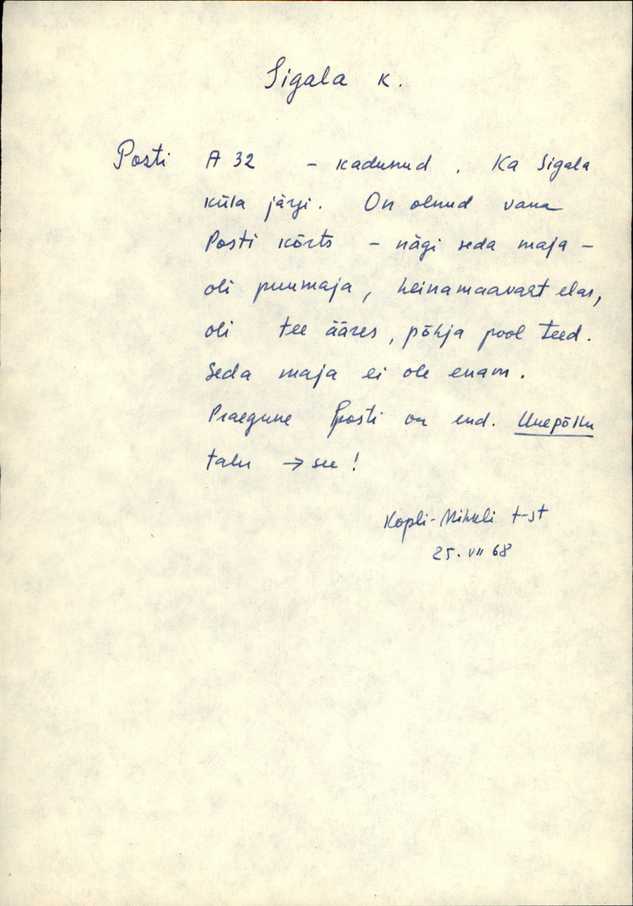 Sigala k.
Posti A 32 - kadunud. Ka Sigala
küla järgi. On olnud vana
Posti kõrts - nägi seda maja -
oli puumaja, heinamaavaht elas,
oli tee ääres, põhja pool teed.
Seda maja ei ole enam.
Praegune Posti on end. Unepõllu
talu → see!
Kopli-Mihkli t-st
25. VII 68